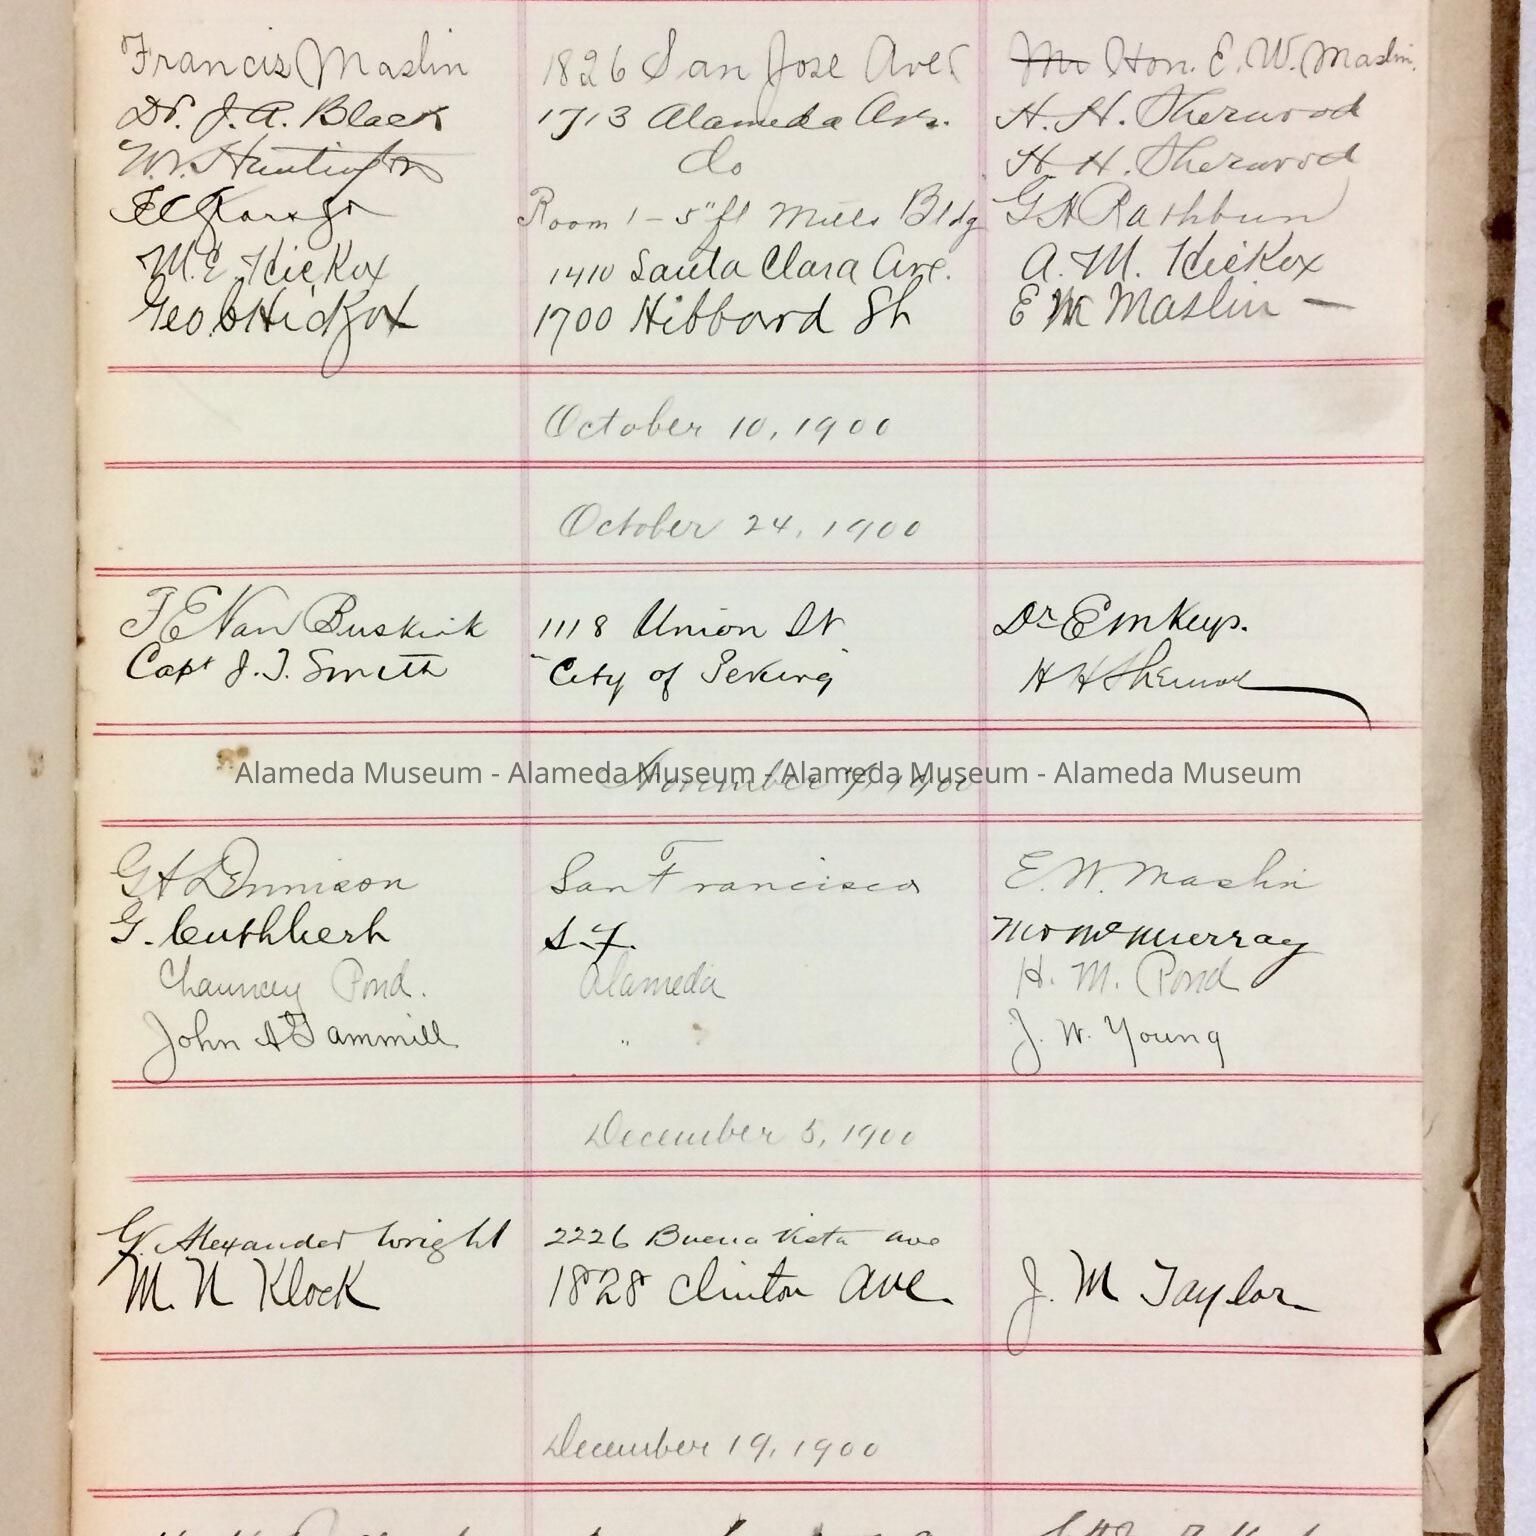 Francis Maslin 1826 San Jose Ave. Mr Hon. E. W. Maslin.
Dr. J. A. Black 1713 Alameda Ave. H. H. Sherwood
W. Huntington do H. H. Sherwood
Room 1 - 5" fl Mills Bldg G H Rathbun
M. E. Hickox 1410 Santa Clara Ave. A. M. Hickox
Geo C Hickox 1700 Hibbard St E W Maslin —
October 10, 1900
October 24, 1900
F E Van Buskirk 1118 Union St Dr E M Keys.
Capt J. T. Smith "City of Peking" H H Sherwood
Alameda Museum - Alameda Museum - Alameda Museum - Alameda Museum
November 7, 1900
G H Dennison San Francisco E. W. Maslin
G. Cuthbert S.F. McMurray
Chauncey Pond. Alameda H. M. Pond
John A Gammill " J. W. Young
December 5, 1900
G. Alexander Wright 2226 Buena Vista Ave
M. N Klock 1828 Clinton Ave. J. M Taylor
December 19, 1900